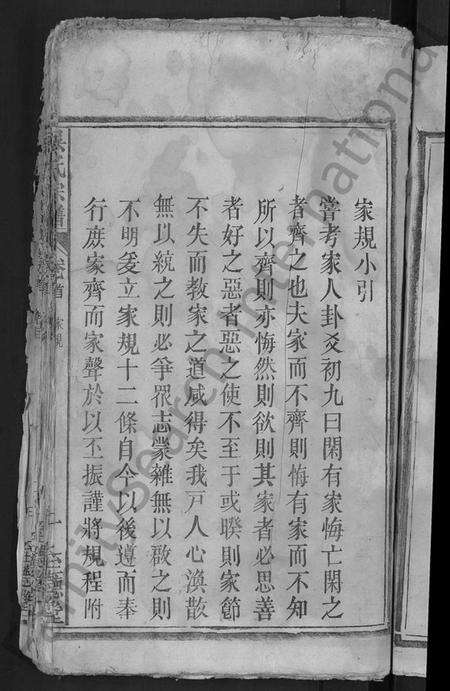 家規小引
嘗考家人卦爻初九曰閑有家悔亡閑之
者齊之也夫家而不齊則悔有家而不知
所以齊則亦悔然則欲則其家者必思善
者好之惡者惡之使不至于或睽則家節
不失而教家之道咸得矣我戸人心渙散
無以統之則必爭眾志蒙雜無以啟之則
不明爰立家規十二條自今以後遵而奉
行庶家齊而家聲於以丕振謹將規程附
氏宗譜
卷首 家規
FamilySearch International